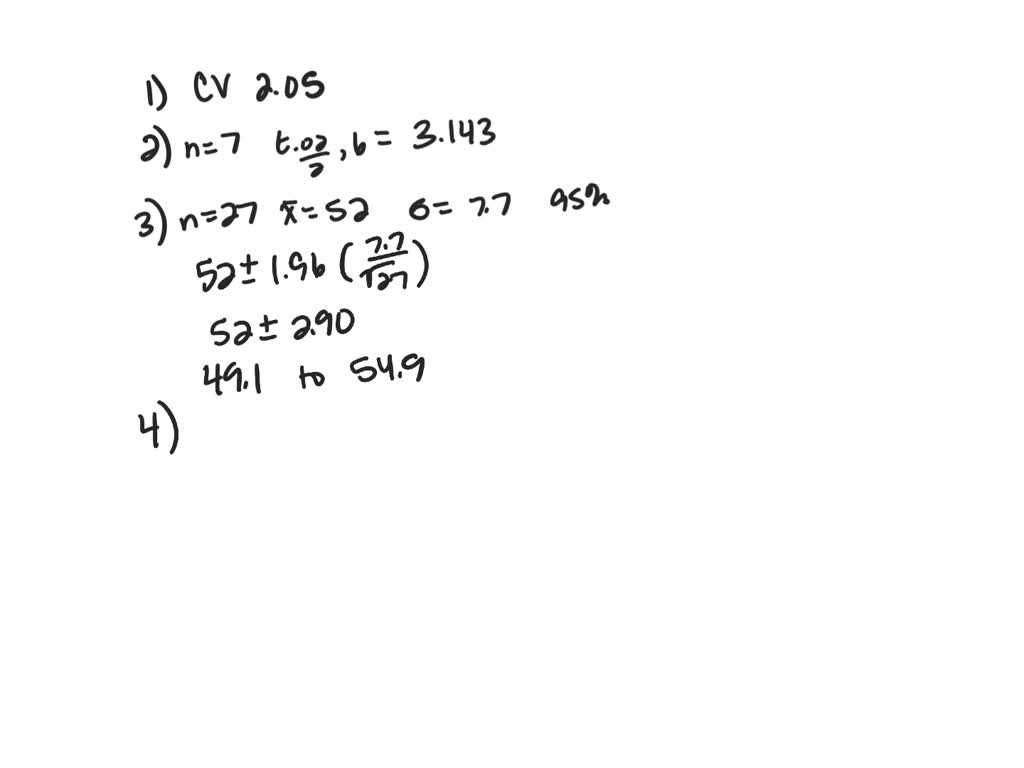 1) CV 2.05
2) n=7 t.02/2, 6 = 3.143
3) n=27 x̄=52 σ= 7.7 95%
52 ± 1.96 (7.7/√27)
52 ± 2.90
49.1 to 54.9
4)